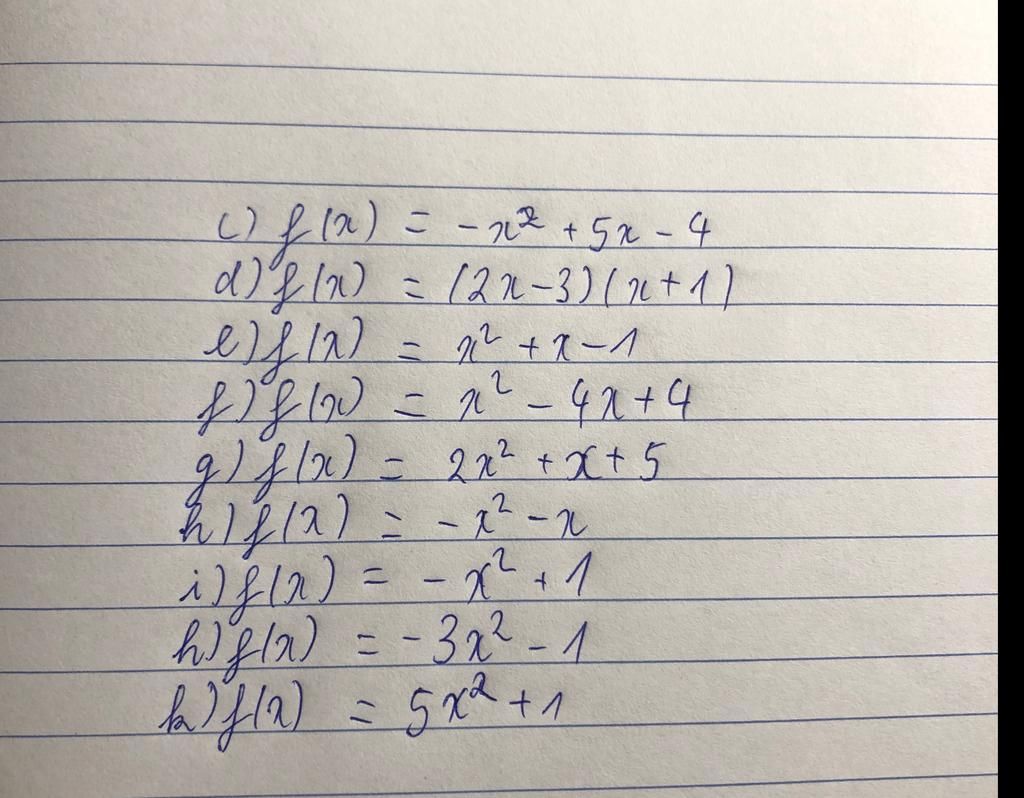 c) f(x) = -x² + 5x - 4
d) f(x) = (2x-3)(x+1)
e) f(x) = x² + x - 1
f) f(x) = x² - 4x + 4
g) f(x) = 2x² + x + 5
h) f(x) = -x² - x
i) f(x) = -x² + 1
h) f(x) = -3x² - 1
k) f(x) = 5x² + 1